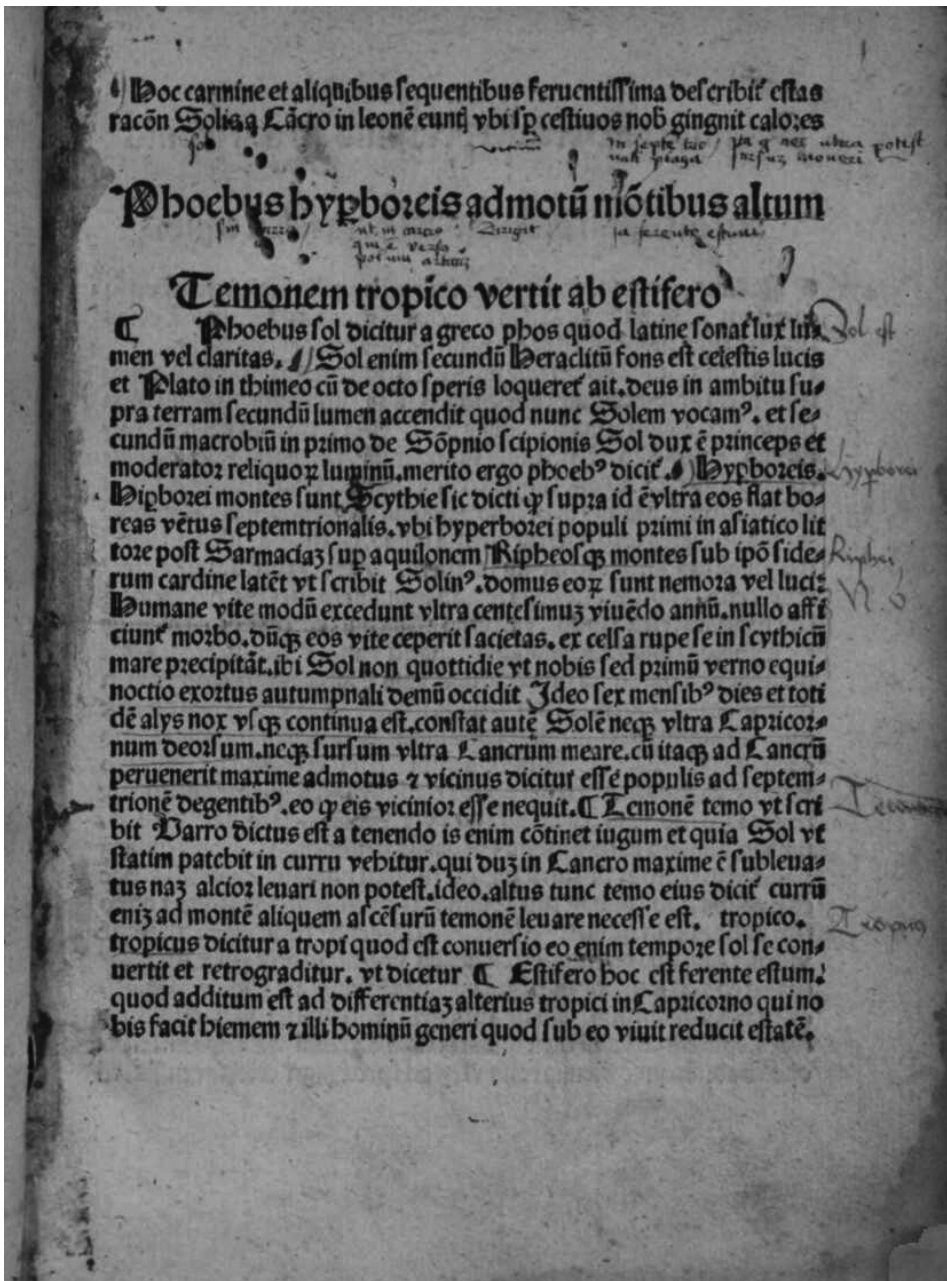 Hoc carmine et aliquibus sequentibus feruentissima describit᷑ estas
racōn Solis q̄ Cācro in leonē eunt᷑ vbi sp̲ cestiuos nob̄ gingnit calores
sol
in septē trio
Phoebus hyp̲boreis admotū mōtibus altum
dirigit
Temonem tropico vertit ab estifero
¶ Phoebus sol dicitur a greco phos quod latine sonat lux lu⸗ Sol est
men vel claritas. Sol enim secundū Heraclitū fons est celestis lucis
et Plato in thimeo cū de octo speris loqueret᷑ ait. deus in ambitu su⸗
pra terram secundū lumen accendit quod nunc Solem vocamꝰ. et se⸗
cundū macrobiū in primo de Sōpnio scipionis Sol dux ē princeps et
moderator reliquoꝝ luminū. merito ergo phoebꝰ dicit᷑. Hyp̲boreis. Hyp̲borei
Hip̲borei montes sunt Scythie sic dicti ꝙ supra id ē vltra eos flat bo⸗
reas vētus septemtrionalis. vbi hyperborei populi primi in asiatico lit
tore post Sarmaciaꝫ sup̲ aquilonem Ripheosqꝫ montes sub ip̄o side⸗ Riphei
rum cardine latēt vt scribit Solinꝰ. domus eoꝝ sunt nemora vel luci:
Humane vite modū excedunt vltra centesimuꝫ viuēdo annū. nullo affi
ciunt᷑ morbo. dūqꝫ eos vite ceperit sacietas. ex celsa rupe se in scythicū
mare precipitāt. ibi Sol non quottidie vt nobis sed primū verno equi⸗
noctio exortus autumpnali demū occidit Ideo sex mensibꝰ dies et toti
dē alys nox vsqꝫ continua est. constat autē Solē neqꝫ vltra Capricor⸗
num deorsum. neqꝫ sursum vltra Cancrum meare. cū itaqꝫ ad Cancrū
peruenerit maxime admotus ⁊ vicinus dicitur esse populis ad septem⸗
trionē degentibꝰ. eo ꝙ eis vicinior esse nequit. ¶ Temonē temo vt scri
bit Varro dictus est a tenendo is enim cōtinet iugum et quia Sol vt
statim patebit in curru vehitur. qui duꝫ in Cancro maxime ē subleua⸗
tus naꝫ alcior leuari non potest. ideo. altus tunc temo eius dicit᷑ currū
eniꝫ ad montē aliquem ascēsurū temonē leuare necesse est. tropico. Tropicus
tropicus dicitur a tropi quod est conuersio eo enim tempore sol se con⸗
uertit et retrograditur. vt dicetur ¶ Estifero hoc est ferente estum.
quod additum est ad differentiaꝫ alterius tropici in Capricorno qui no
bis facit hiemem ⁊ illi hominū generi quod sub eo viuit reducit estatē.